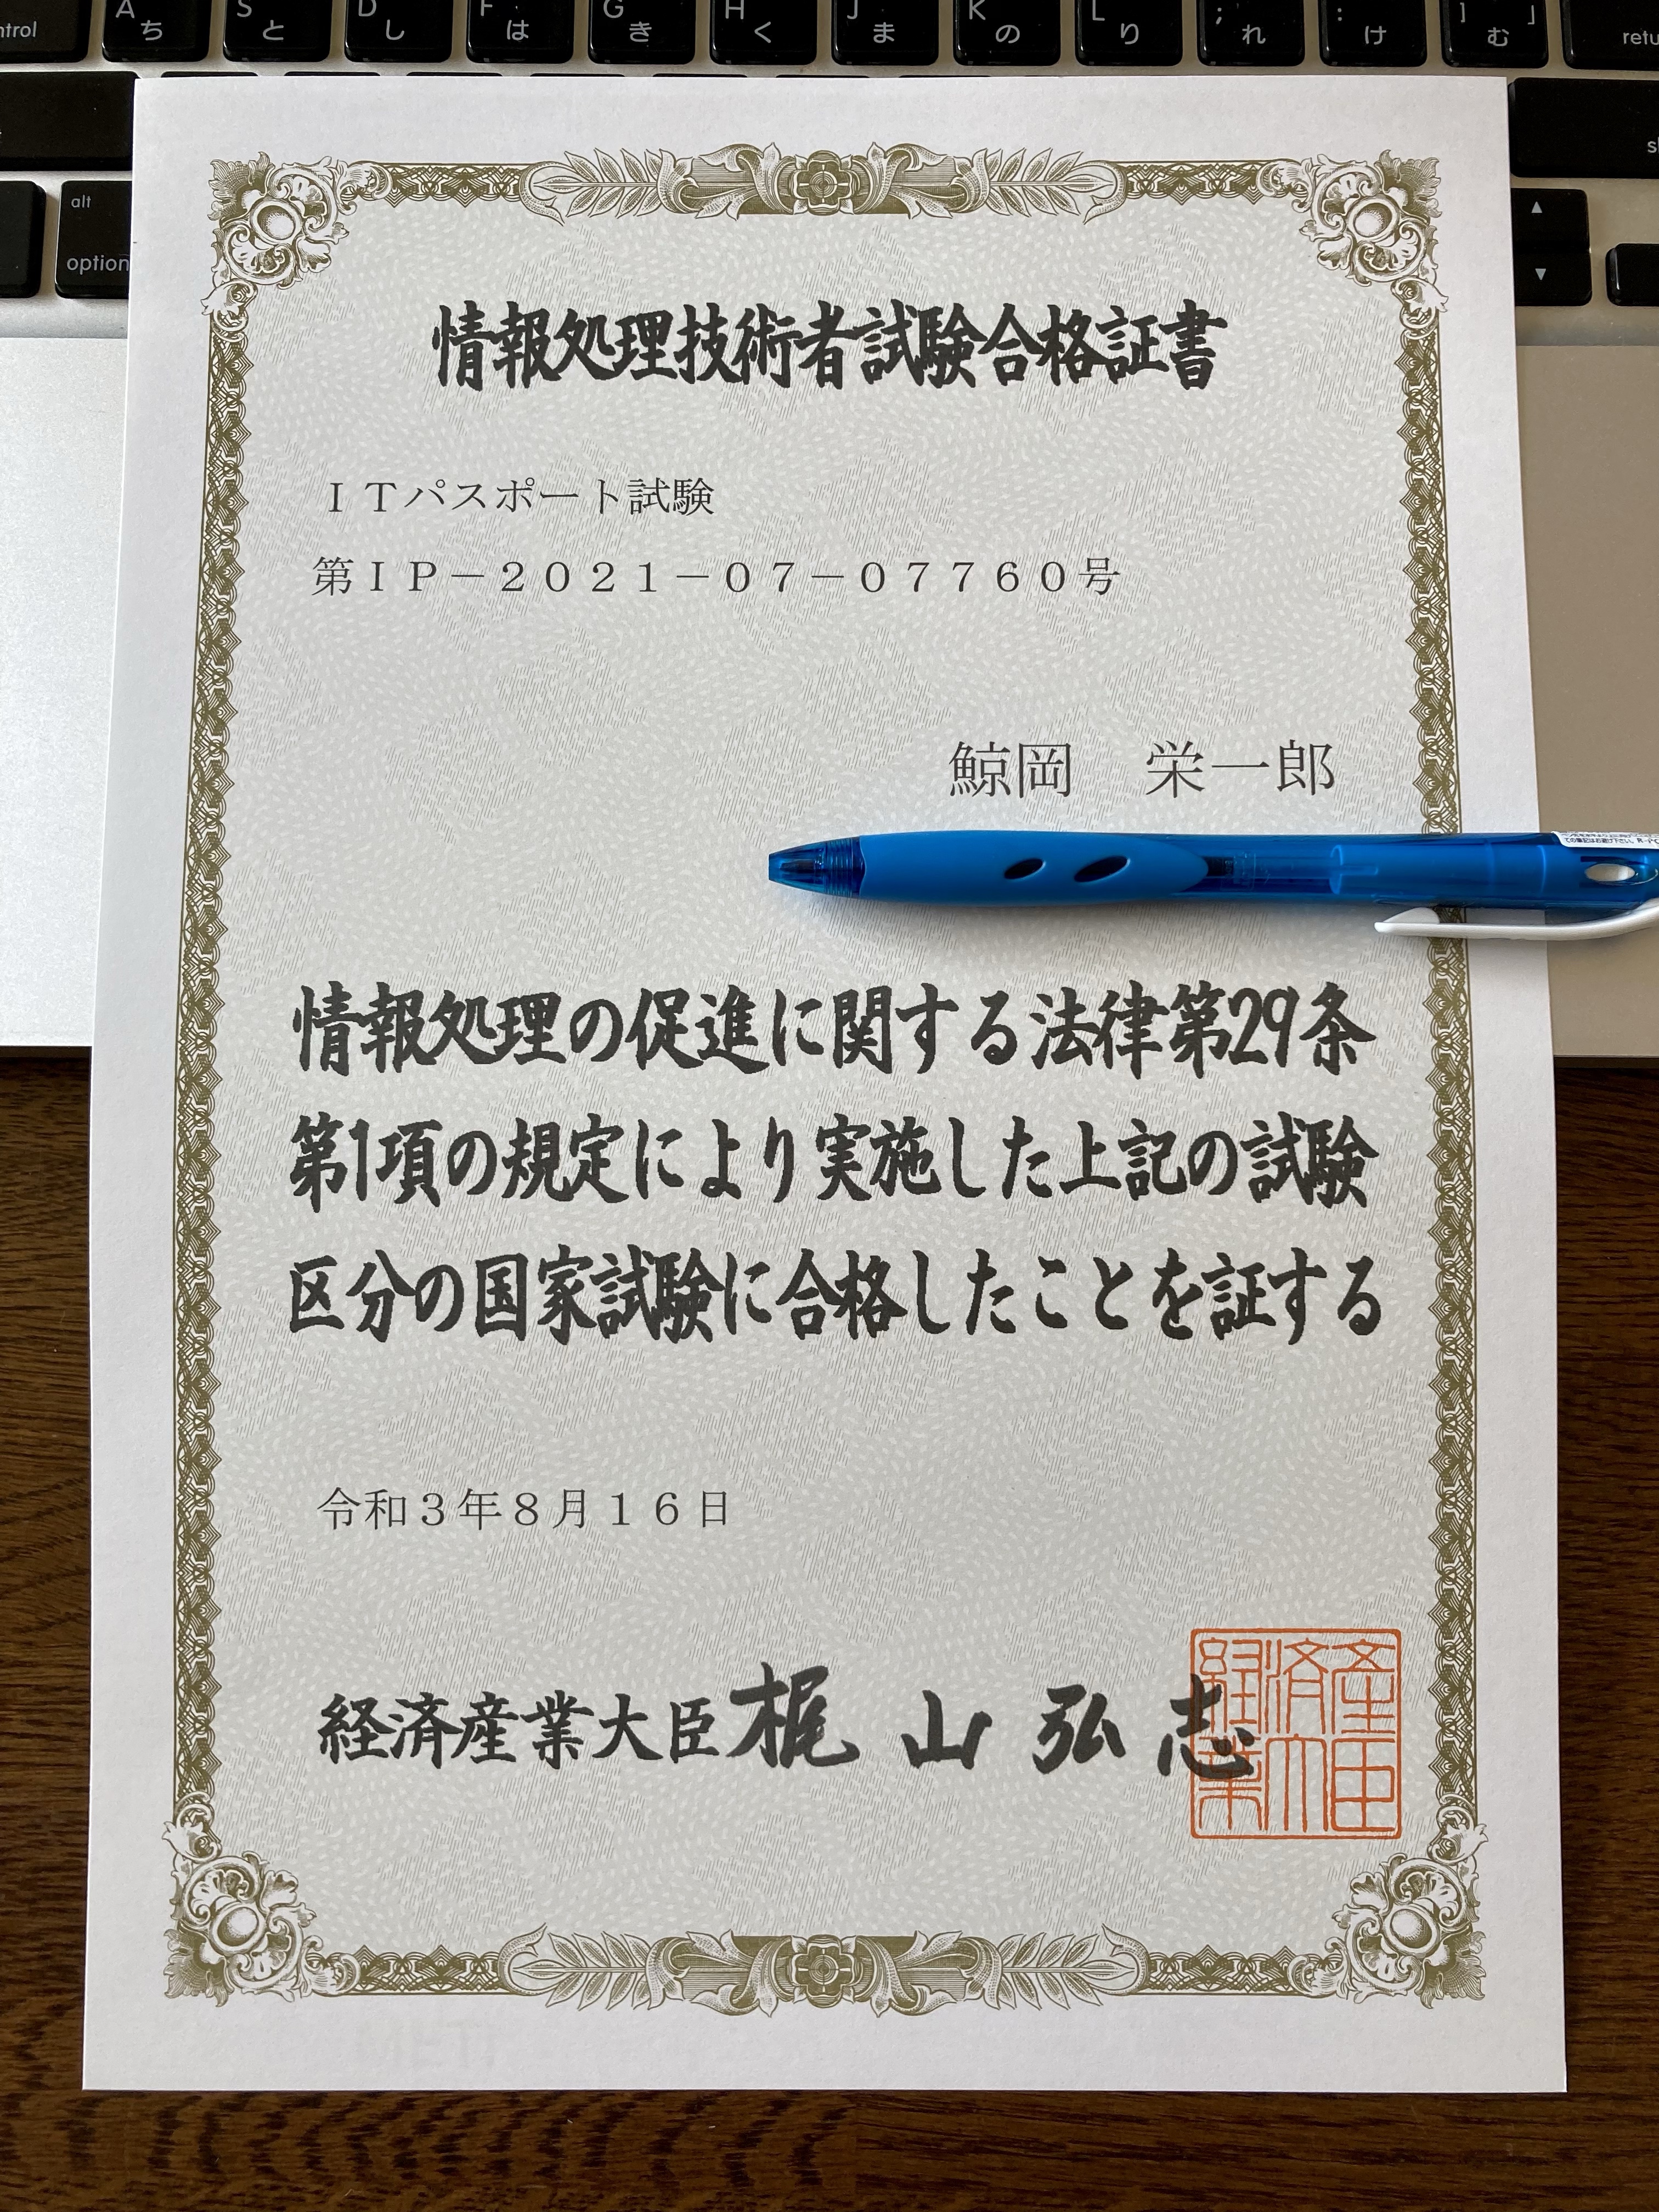 control
A ち
S と
D し
F は
G き
H く
J ま
K の
L り
; れ
: け
] 」 む
alt
option
情報処理技術者試験合格証書
ITパスポート試験
第IP−2021−07−07760号
鯨岡 栄一郎
情報処理の促進に関する法律第29条
第1項の規定により実施した上記の試験
区分の国家試験に合格したことを証する
令和3年8月16日
経済産業大臣 梶山弘志
METI